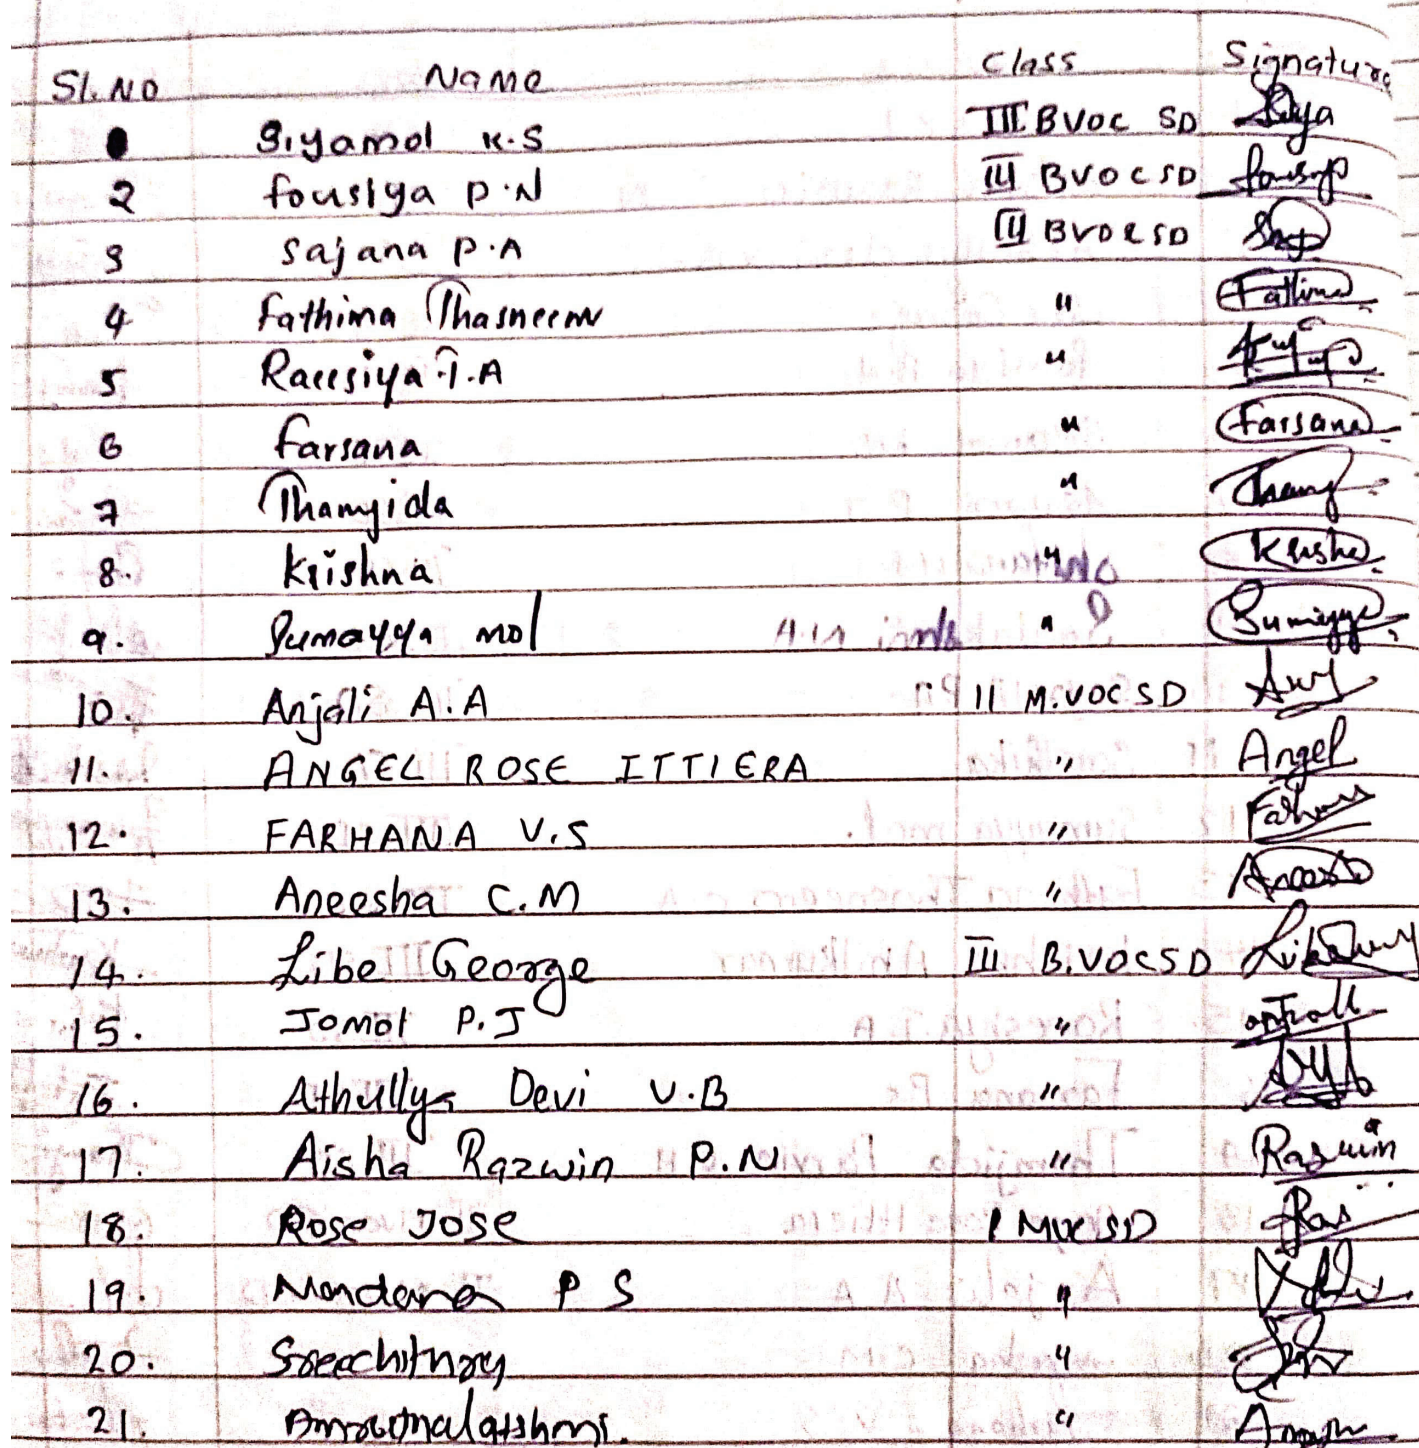 Sl. NO Name Class Signature
Siyamol K.S III BVOC SD Siya
2 fousiya P.N III BVOC SD
3 Sajana P.A III BVOC SD
4 Fathima Thasneem " Fathima
5 Raeesiya T.A "
6 farsana " Farsana
7 Thamjida " Thamj
8. Krishna " Krishna
9. Sumayya mol " Sumayya
10. Anjali A.A II M.VOC SD Anj
11. ANGEL ROSE ITTIERA " Angel
12. FARHANA V.S " Farhana
13. Aneesha C.M " Aneesha
14. Libe George III B.VOC SD
15. Jomol P.J "
16. Athullya Devi V.B "
17. Aisha Razwin P.N " Razwin
18. Rose Jose I MVOC SD
19. Nandana P S "
20. Sreechithra "
21. Amruthalakshmi. "